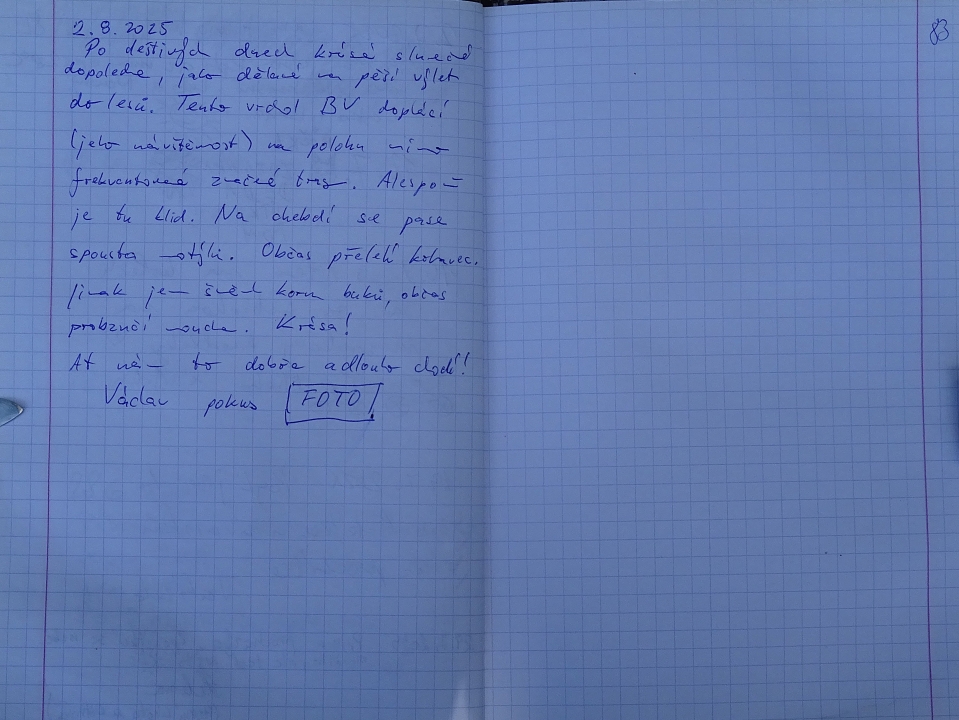 2.8.2025
Po deštivých dnech krásné slunečné
dopoledne, jako dělané na pěší výlet
do lesů. Tento vrchol BV doplácí
(jeho návštěvnost) na polohu mimo
frekventované značené trasy. Alespoň
je tu klid. Na chebdí se pase
spousta motýlů. Občas přeletí krkavec.
Jinak jen šumění korun buků, občas
probzučí moucha. Krása!
Ať nám to dobře a dlouho chodí!
Václav pokus FOTO
83